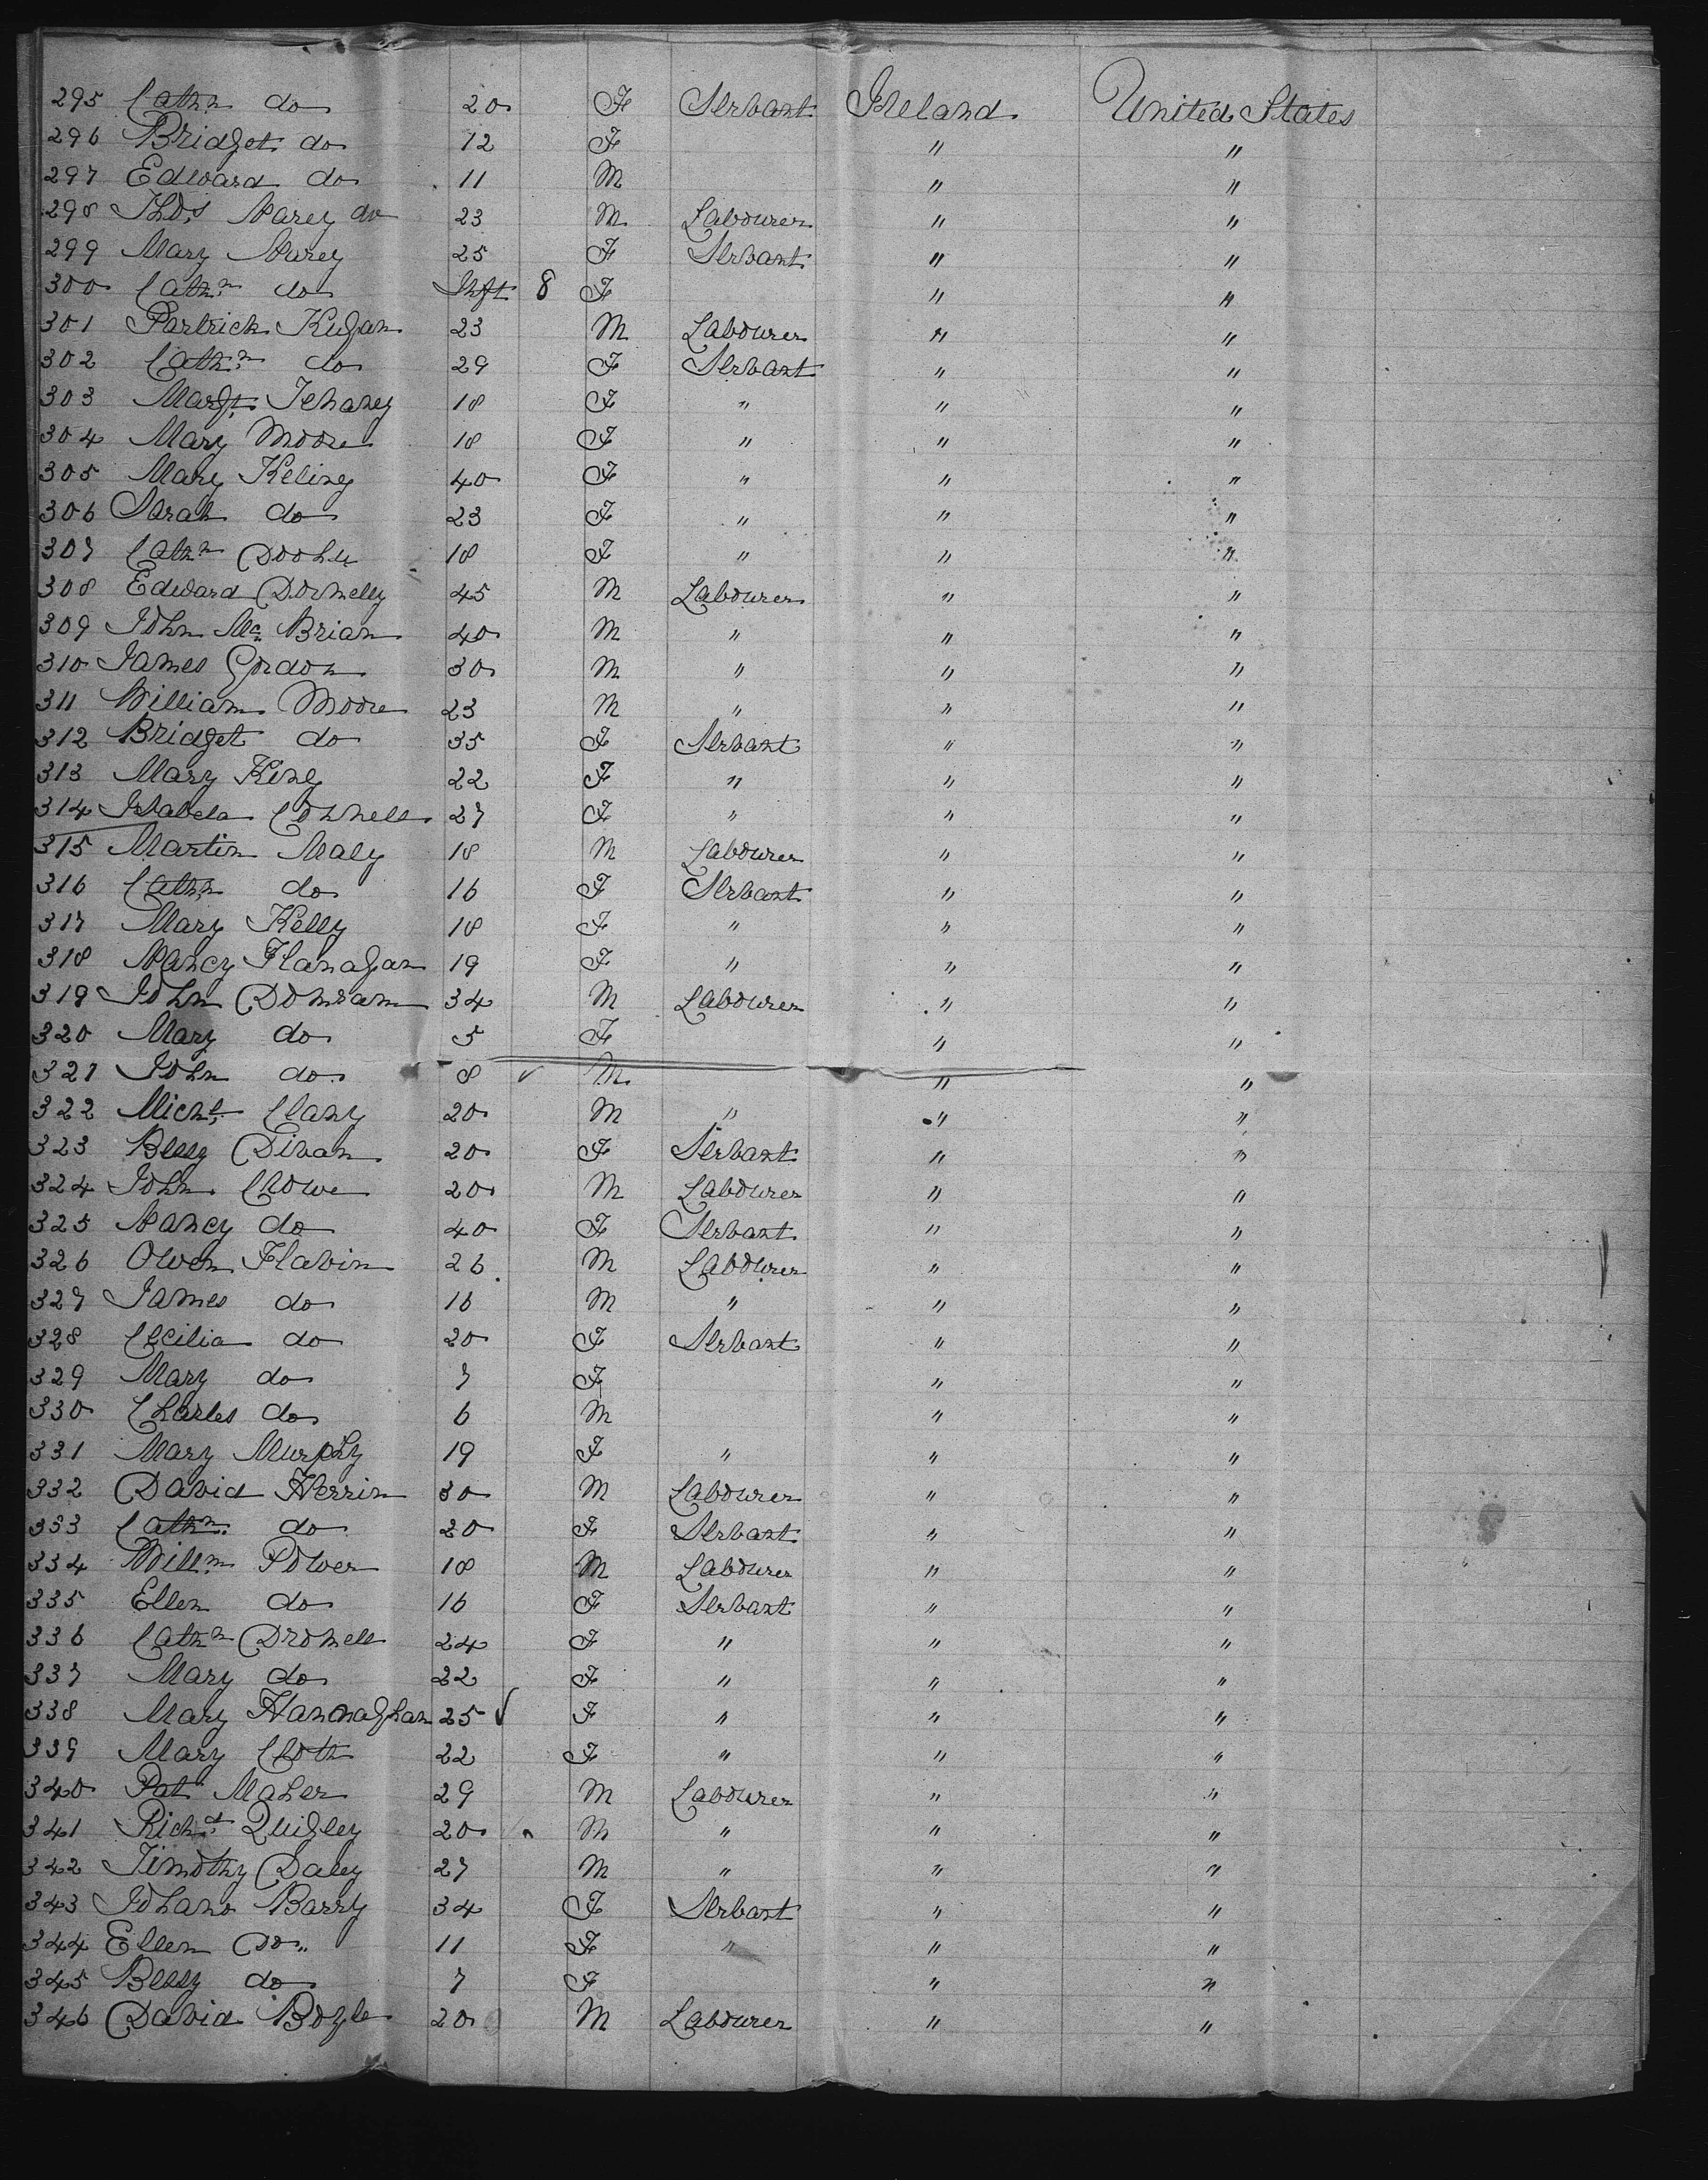 295 Cathn do 20 F Servant Ireland United States
296 Bridget do 12 F " "
297 Edward do 11 M " "
298 Thos Narey do 23 M Labourer " "
299 Mary Narey 25 F Servant " "
300 Cathn do Inft 8 F " "
301 Partrick Kugan 23 M Labourer " "
302 Cathn do 29 F Servant " "
303 Margt Tehaney 18 F " " "
304 Mary Moore 18 F " " "
305 Mary Keliny 40 F " " "
306 Sarah do 23 F " " "
307 Cathn 18 F " " "
308 Edward Dornelly 45 M Labourer " "
309 John Mc Brian 40 M " " "
310 James Gordon 30 M " " "
311 William Moore 23 M " " "
312 Bridget do 35 F Servant " "
313 Mary King 22 F " " "
314 Isabela Connell 27 F " " "
315 Martin Maly 18 M Labourer " "
316 Cathn do 16 F Servant " "
317 Mary Kelly 18 F " " "
318 Nancy Flanagan 19 F " " "
319 John Donram 34 M Labourer " "
320 Mary do 5 F " "
321 John do 8 M " "
322 Michl Clany 20 M " " "
323 Bessy Divan 20 F Servant " "
324 John Crowe 20 M Labourer " "
325 Nancy do 40 F Servant " "
326 Owen Flavin 26 M Labourer " "
327 James do 16 M " " "
328 Cecilia do 20 F Servant " "
329 Mary do 7 F " "
330 Charles do 6 M " "
331 Mary Murphy 19 F " " "
332 David Herrin 30 M Labourer " "
333 Cathn do 20 F Servant " "
334 Willm Power 18 M Labourer " "
335 Ellen do 16 F Servant " "
336 Cathn Dronell 24 F " " "
337 Mary do 22 F " " "
338 Mary Hannaghan 25 F " " "
339 Mary 22 F " " "
340 Pat Maher 29 M Labourer " "
341 Richd Quigley 20 M " " "
342 Timothy Daley 27 M " " "
343 Johano Barry 34 F Servant " "
344 Ellen Do 11 F " " "
345 Bessy do 7 F " "
346 David Boyle 20 M Labourer " "